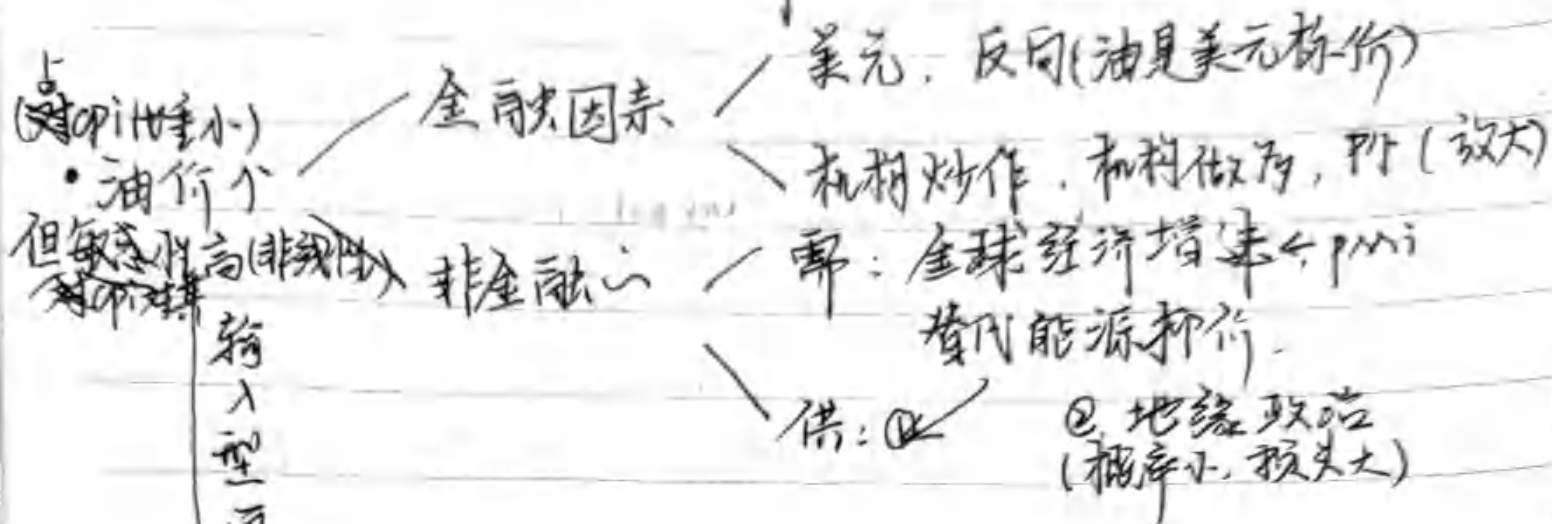 占
(对cpi比重小)
• 油价↑
但敏感性高(非线性)
金融因素
美元. 反向(油是美元标价)
机构炒作. 机构做多, P↑(放大)
非金融〃
需: 全球经济增速 ← pmi
替代能源抑价.
供: ①
② 地缘政治
(概率小, 损失大)
输
入
型